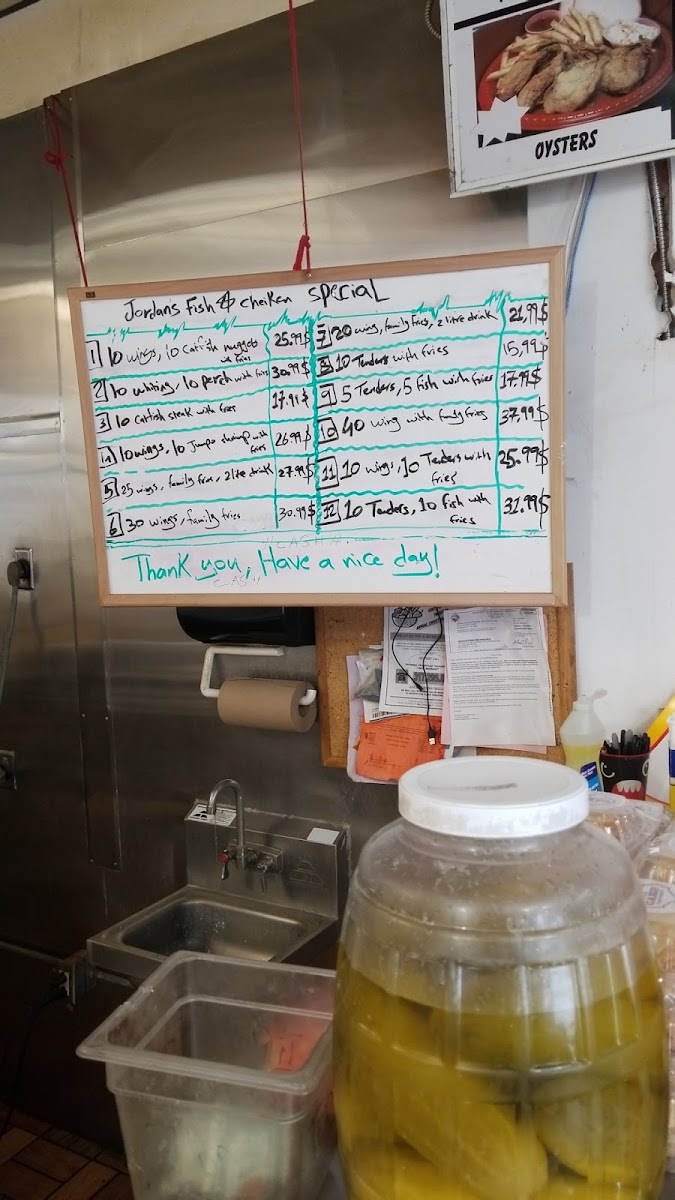 OYSTERS
Jordan's Fish & cheiken SPECIAL
1 10 wings, 10 Catfish nuggets
with fries
25.99$
2 10 whiting, 10 perch with fries 30.99$
3 10 Catfish steak with fries 17.99$
4 10 wings, 10 Jumpo shrimp with
fries
26.99$
5 25 wings, family fries, 2 litre drink 27.99$
6 30 wings, family fries 30.99$
7 20 wing, family fries, 2 litre drink 21.99$
8 10 Tenders with fries 15.99$
9 5 Tenders, 5 fish with fries 17.99$
10 40 wing with family fries 37,99$
11 10 wings, 10 Tenders with
fries
25.99$
12 10 Tenders, 10 Fish with
fries
31.99$
Thank you, Have a nice day!